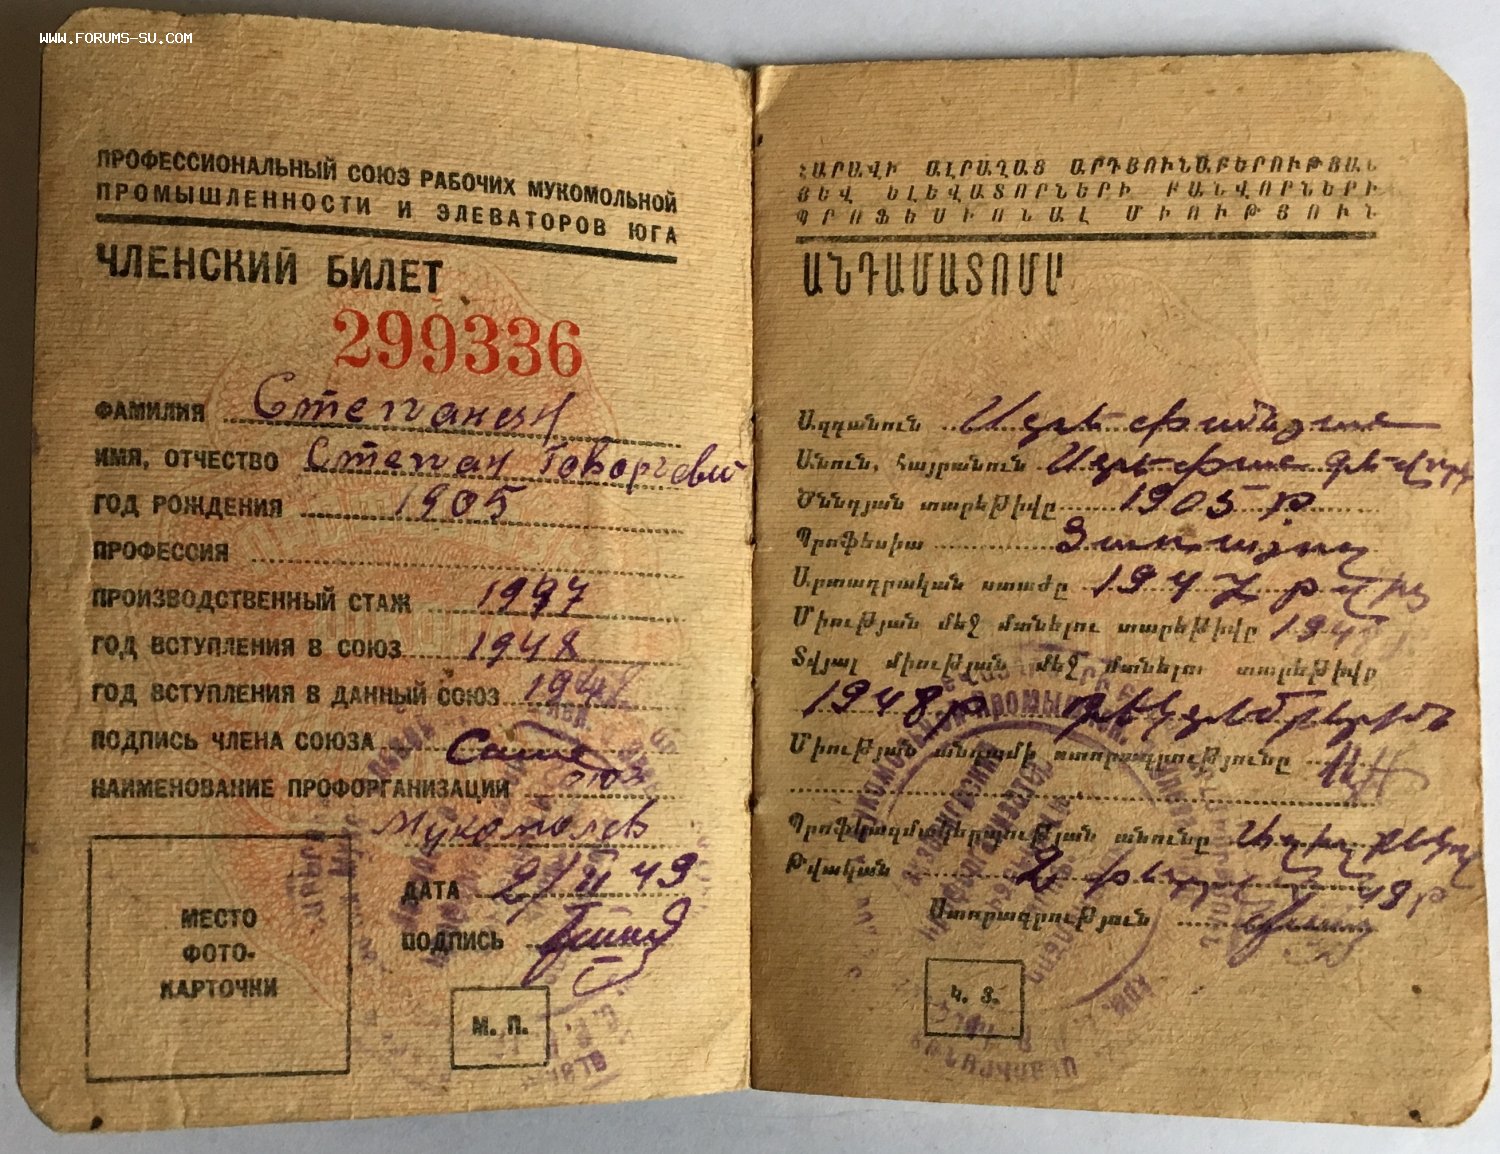 WWW.FORUMS-SU.COM
ПРОФЕССИОНАЛЬНЫЙ СОЮЗ РАБОЧИХ МУКОМОЛЬНОЙ
ПРОМЫШЛЕННОСТИ И ЭЛЕВАТОРОВ ЮГА
ЧЛЕНСКИЙ БИЛЕТ
299336
ФАМИЛИЯ Степанян
ИМЯ, ОТЧЕСТВО Степан Геворгевич
ГОД РОЖДЕНИЯ 1905
ПРОФЕССИЯ
ПРОИЗВОДСТВЕННЫЙ СТАЖ 1947
ГОД ВСТУПЛЕНИЯ В СОЮЗ 1948
ГОД ВСТУПЛЕНИЯ В ДАННЫЙ СОЮЗ 1948
ПОДПИСЬ ЧЛЕНА СОЮЗА
НАИМЕНОВАНИЕ ПРОФОРГАНИЗАЦИИ союз
мукомолов
ДАТА 2/II 49
ПОДПИСЬ
МЕСТО
ФОТО-
КАРТОЧКИ
М. П.
ՀԱՐԱՎԻ ԱԼՐԱՂԱՑ ԱՐԴՅՈՒՆԱԲԵՐՈՒԹՅԱՆ
ՅԵՎ ԵԼԵՎԱՏՈՐՆԵՐԻ ԲԱՆՎՈՐՆԵՐԻ
ՊՐՈՖԵՍԻՈՆԱԼ ՄԻՈՒԹՅՈՒՆ
ԱՆԴԱՄԱՏՈՄՍ
Ազգանուն Ստեփանյան
Անուն, Հայրանուն Ստեփան Գևորգի
Ծննդյան տարեթիվը 1905 թ
Պրոֆեսիա Ծառայող
Արտադրական ստաժը 1947 թվից
Միության մեջ մտնելու տարեթիվը 1948
Տվյալ միության մեջ մտնելու տարեթիվը
1948 թ դեկտեմբերին
Միության անդամի ստորագրությունը
Պրոֆկազմակերպության անունը
Թվական 2 49 թ
Ստորագրություն
Կ. Տ.